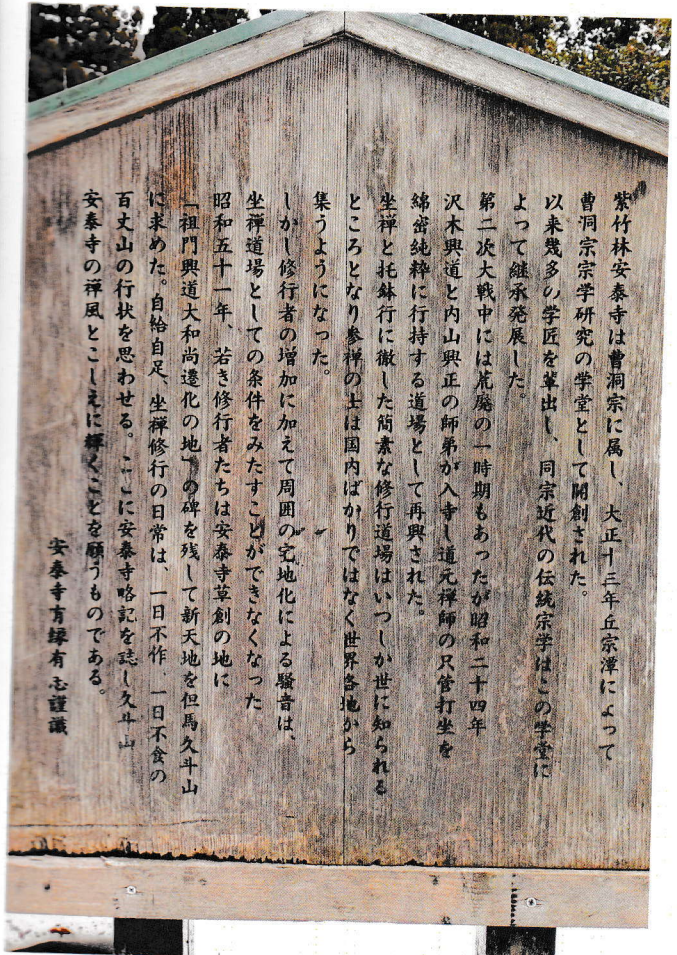 紫竹林安泰寺は曹洞宗に属し、大正十三年丘宗潭によって
曹洞宗宗学研究の学堂として開創された。
以来幾多の学匠を輩出し、同宗近代の伝統宗学はこの学堂に
よって継承発展した。
第二次大戦中には荒廃の一時期もあったが昭和二十四年
沢木興道と内山興正の師弟が入寺し道元禅師の只管打坐を
綿密純粋に行持する道場として再興された。
坐禅と托鉢行に徹した簡素な修行道場はいつしか世に知られる
ところとなり参禅の士は国内ばかりではなく世界各地から
集うようになった。
しかし修行者の増加に加えて周囲の宅地化による騒音は、
坐禅道場としての条件をみたすことができなくなった
昭和五十一年、若き修行者たちは安泰寺草創の地に
「祖門興道大和尚遷化の地」の碑を残して新天地を但馬久斗山
に求めた。自給自足、坐禅修行の日常は、一日不作、一日不食の
百丈山の行状を思わせる。ここに安泰寺略記を誌し久斗山
安泰寺の禅風とこしえに輝くことを願うものである。
安泰寺有縁有志謹識